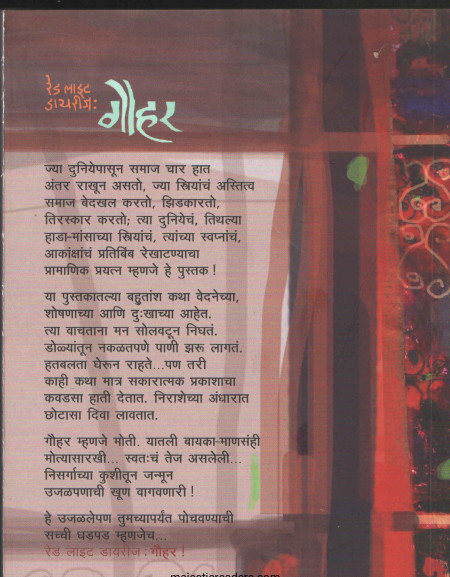 रेड लाइट
डायरीज:
गौहर
ज्या दुनियेपासून समाज चार हात
अंतर राखून असतो, ज्या स्त्रियांचं अस्तित्व
समाज बेदखल करतो, झिडकारतो,
तिरस्कार करतो; त्या दुनियेचं, तिथल्या
हाडा-मांसाच्या स्त्रियांचं, त्यांच्या स्वप्नांचं,
आकांक्षांचं प्रतिबिंब रेखाटण्याचा
प्रामाणिक प्रयत्न म्हणजे हे पुस्तक!
या पुस्तकातल्या बहुतांश कथा वेदनेच्या,
शोषणाच्या आणि दुःखाच्या आहेत.
त्या वाचताना मन सोलवटून निघतं.
डोळ्यांतून नकळतपणे पाणी झरू लागतं.
हतबलता घेरून राहते...पण तरी
काही कथा मात्र सकारात्मक प्रकाशाचा
कवडसा हाती देतात. निराशेच्या अंधारात
छोटासा दिवा लावतात.
गौहर म्हणजे मोती. यातली बायका-माणसंही
मोत्यासारखी... स्वतःचं तेज असलेली...
निसर्गाच्या कुशीतून जन्मून
उजळपणाची खूण वागवणारी!
हे उजळलेपण तुमच्यापर्यंत पोचवण्याची
सच्ची धडपड म्हणजेच...
रेड लाइट डायरीज : गौहर!
majesticreaders.com